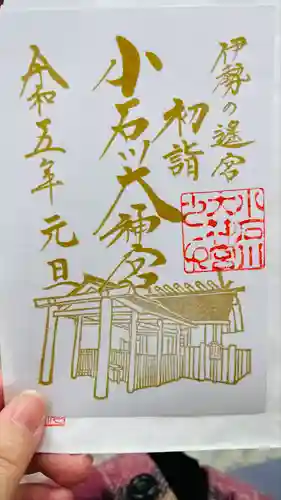 伊勢の遥宮
初詣
小石川大神宮
令和五年元旦
小石川
大神宮
之印